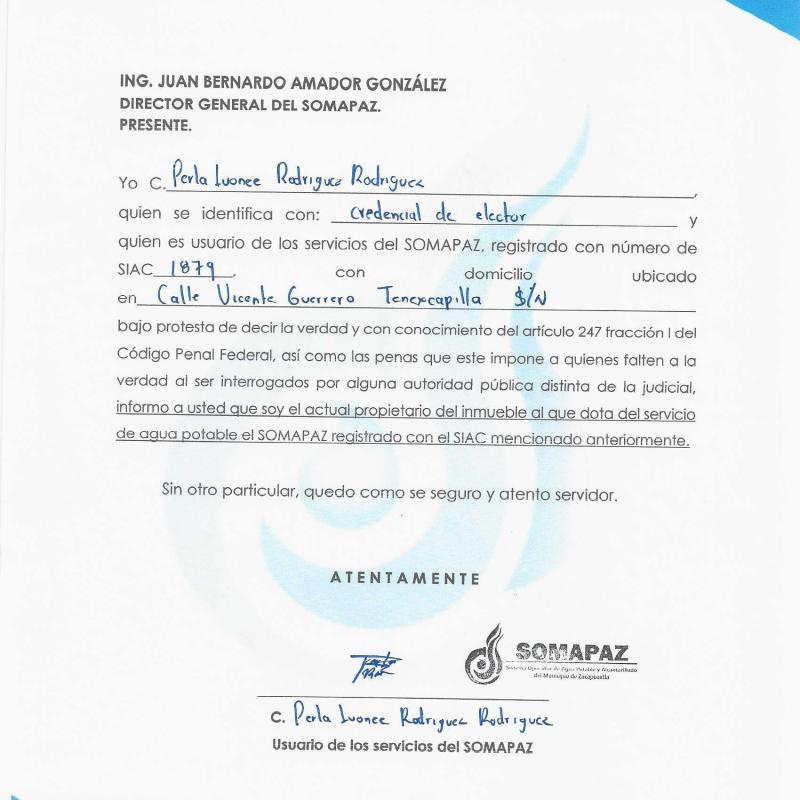 ING. JUAN BERNARDO AMADOR GONZÁLEZ
DIRECTOR GENERAL DEL SOMAPAZ.
PRESENTE.
Yo C. Perla Ivonee Rodriguez Rodriguez,
quien se identifica con: credencial de elector y
quien es usuario de los servicios del SOMAPAZ, registrado con número de
SIAC 1879, con domicilio ubicado
en Calle Vicente Guerrero Tenexcapilla S/N
bajo protesta de decir la verdad y con conocimiento del artículo 247 fracción I del
Código Penal Federal, así como las penas que este impone a quienes falten a la
verdad al ser interrogados por alguna autoridad pública distinta de la judicial,
informo a usted que soy el actual propietario del inmueble al que dota del servicio
de agua potable el SOMAPAZ registrado con el SIAC mencionado anteriormente.
Sin otro particular, quedo como se seguro y atento servidor.
ATENTAMENTE
SOMAPAZ
Sistema Operador de Agua Potable y Alcantarillado
del Municipio de Zacapoaxtla
C. Perla Ivonee Rodriguez Rodriguez
Usuario de los servicios del SOMAPAZ